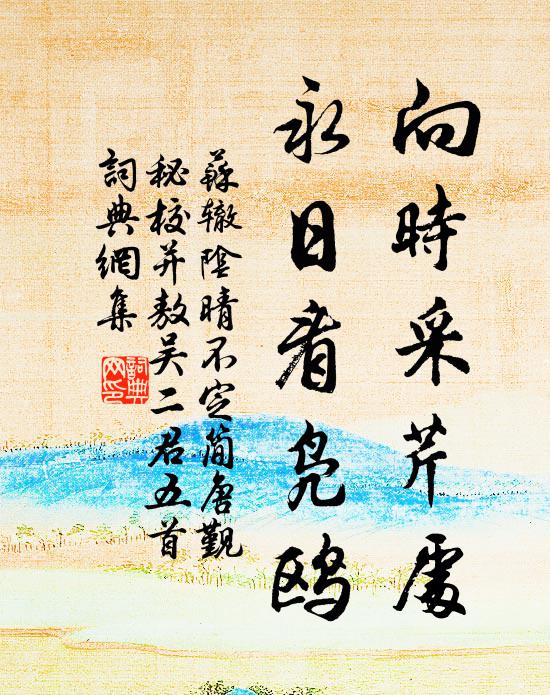 向時采芹處
永日看鳧鷗
蘇轍陰晴不定簡唐覲
秘校并敖吴二君五首
詞典網集
詞典
网印